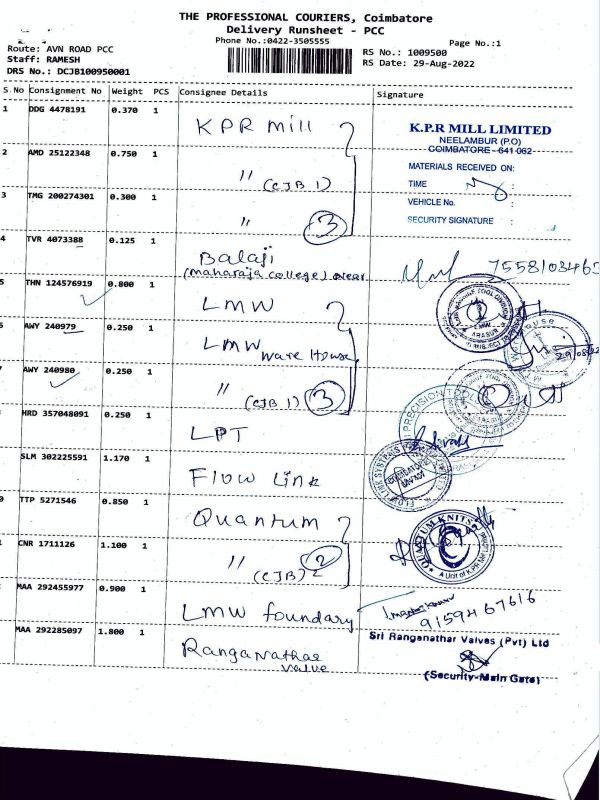 THE PROFESSIONAL COURIERS, Coimbatore
Delivery Runsheet - PCC
Phone No.:0422-3505555
Page No.:1
Route: AVN ROAD PCC
Staff: RAMESH
DRS No.: DCJB100950001
RS No.: 1009500
RS Date: 29-Aug-2022
S.No Consignment No Weight PCS Consignee Details Signature
1 DDG 4478191 0.370 1 KPR Mill
K.P.R MILL LIMITED
NEELAMBUR (P.O)
COIMBATORE - 641 062
2 AMD 25122348 0.750 1 〃 (CJB 1)
MATERIALS RECEIVED ON:
TIME :
VEHICLE No. :
3 TMG 200274301 0.300 1 〃 3
SECURITY SIGNATURE :
4 TVR 4073388 0.125 1 Balaji
(Maharaja College) Near
THN 124576919 0.800 1 LMW
AWY 240979 0.250 1 LMW
Ware House
AWY 240980 0.250 1 〃 (CJB 1) 3
HRD 357048091 0.250 1 LPT
PRECISION
SLM 302225591 1.170 1 Flow Link
TTP 5271546 0.850 1 Quantum
QUANTUM KNITS
A Unit of K.P.R
CNR 1711126 1.100 1 〃 (CJB) 2
MAA 292455977 0.900 1 LMW foundary
9159467616
MAA 292285097 1.800 1 Ranganathar
Valve
Sri Ranganathar Valves (Pvt) Ltd
(Security-Main Gate)